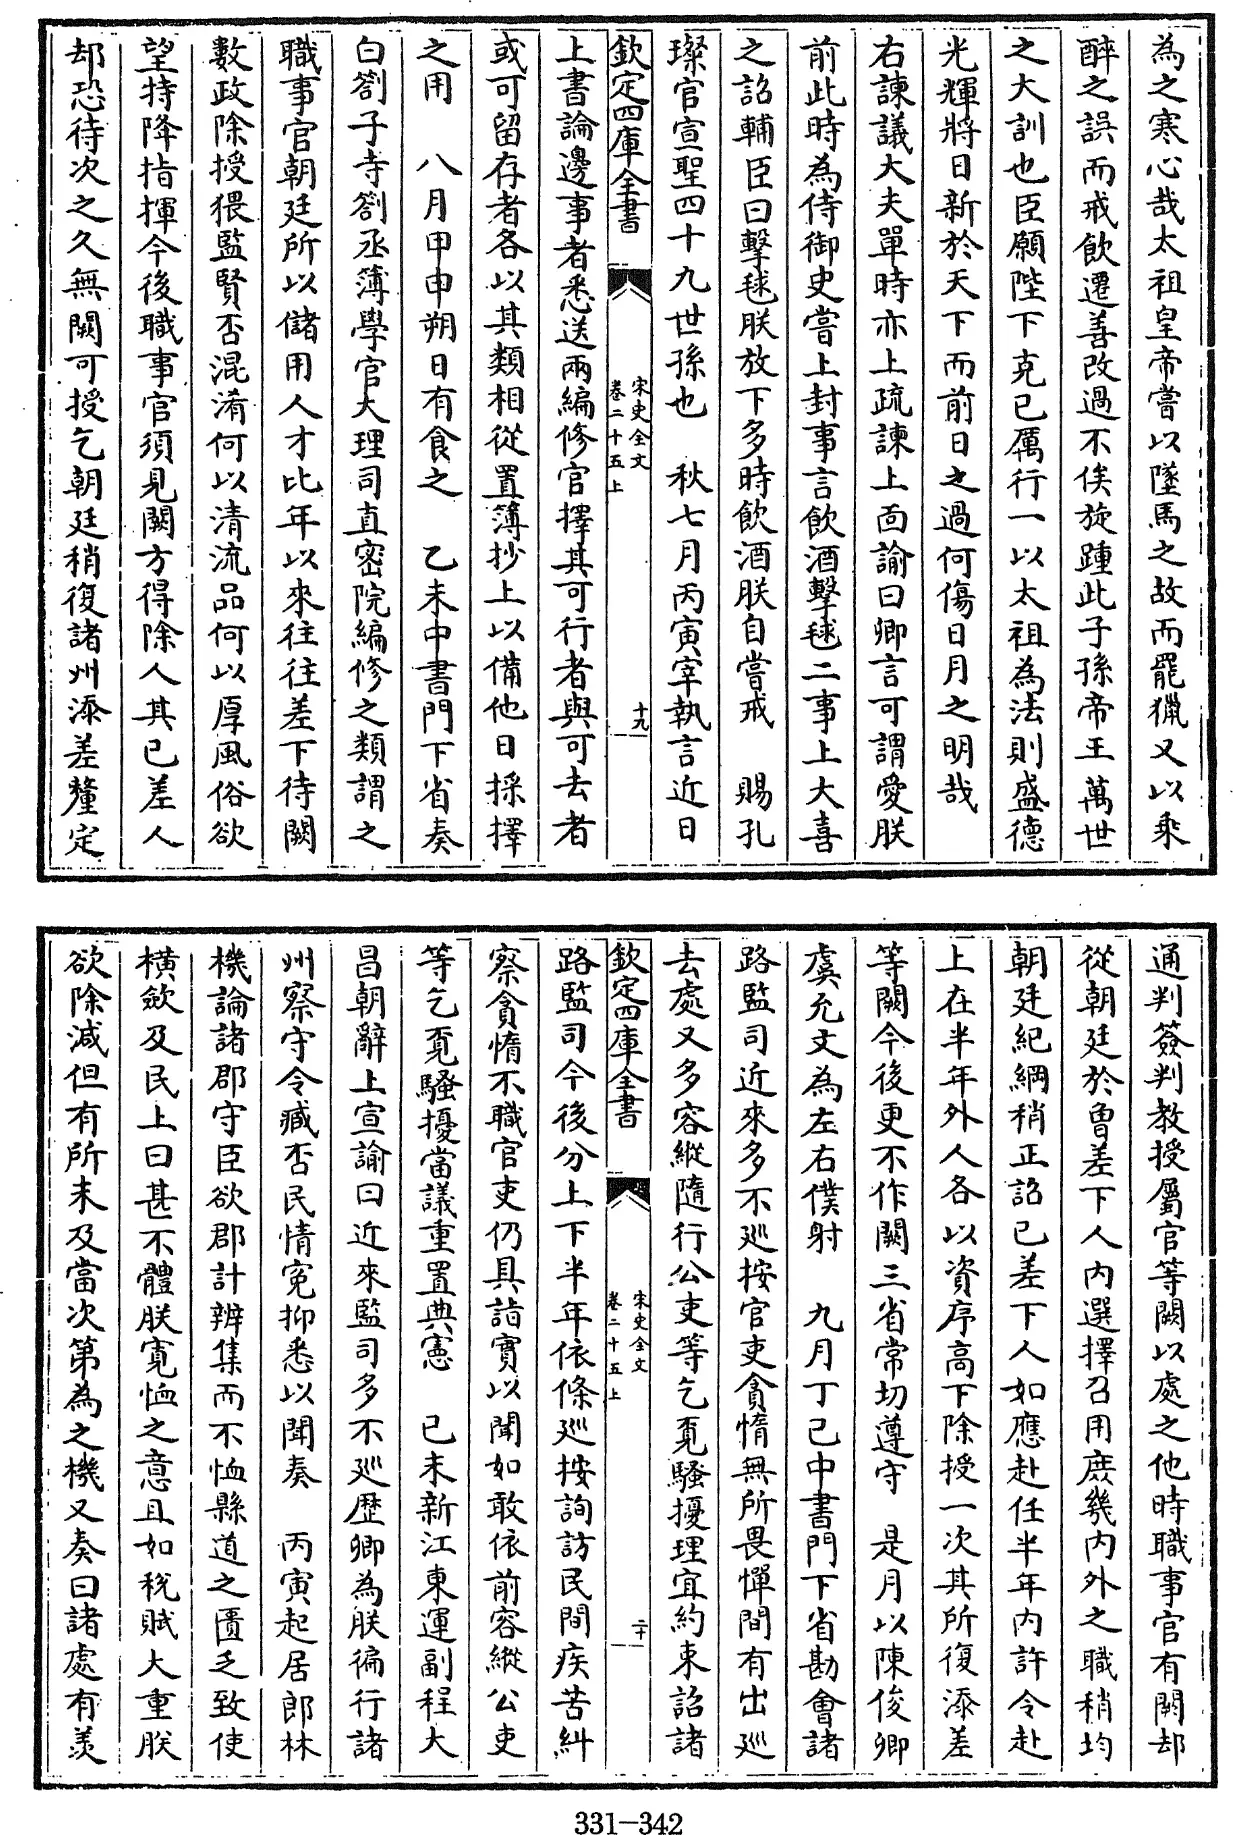 為之寒心哉太祖皇帝嘗以墜馬之故而罷獵又以乘
醉之誤而戒飲遷善改過不俟旋踵此子孫帝王萬世
之大訓也臣願陛下克己厲行一以太祖為法則盛德
光輝將日新於天下而前日之過何傷日月之明哉
右諫議大夫單時亦上疏諫上面諭曰卿言可謂愛朕
前此時為侍御史嘗上封事言飲酒擊毬二事上大喜
之詔輔臣曰擊毬朕放下多時飲酒朕自當戒　賜孔
璨官宣聖四十九世孫也　秋七月丙寅宰執言近日
欽定四庫全書
宋史全文
卷二十五上
十九
上書論邊事者悉送兩編修官擇其可行者與可去者
或可留存者各以其類相從置簿抄上以備他日採擇
之用　八月甲申朔日有食之　乙未中書門下省奏
白劄子寺劄丞簿學官大理司直密院編修之類謂之
職事官朝廷所以儲用人才比年以來往往差下待闕
數政除授猥監賢否混淆何以清流品何以厚風俗欲
望特降指揮今後職事官須見闕方得除人其已差人
却恐待次之久無闕可授乞朝廷稍復諸州添差釐定
通判簽判教授屬官等闕以處之他時職事官有闕却
從朝廷於曾差下人內選擇召用庶幾內外之職稍均
朝廷紀綱稍正詔已差下人如應赴任半年內許令赴
上在半年外人各以資序高下除授一次其所復添差
等闕今後更不作闕三省常切遵守　是月以陳俊卿
虞允文為左右僕射　九月丁巳中書門下省勘會諸
路監司近來多不巡按官吏貪惰無所畏憚間有出巡
去處又多容縱隨行公吏等乞覓騷擾理宜約束詔諸
欽定四庫全書
宋史全文
卷二十五上
二十
路監司今後分上下半年依條巡按詢訪民間疾苦糾
察貪惰不職官吏仍具詣實以聞如敢依前容縱公吏
等乞覓騷擾當議重置典憲　己未新江東運副程大
昌朝辭上宣諭曰近來監司多不巡歷卿為朕徧行諸
州察守令臧否民情寃抑悉以聞奏　丙寅起居郎林
機論諸郡守臣欲郡計辨集而不恤縣道之匱乏致使
橫歛及民上曰甚不體朕寬恤之意且如稅賦大重朕
欲除減但有所未及當次第為之機又奏曰諸處有羨
331-342